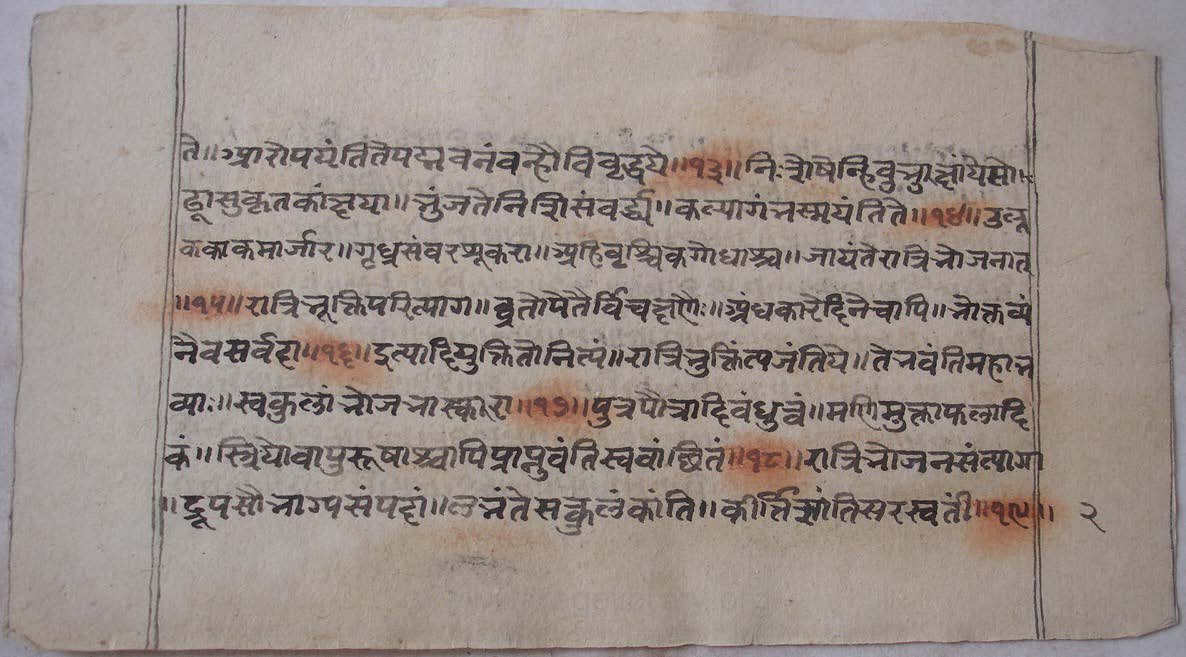 ते॥ आरोपयंतितेपद्मवनंवन्हौविवृद्धये॥१३॥ निःशेषेन्हिबुभुक्षांयेसो
ढ्वासुकृतकांक्षया॥ भुंजतेनिशिसंवर्द्ध्य॥ कल्पागंभस्मयंतिते॥१४॥ उलू
ककाकमार्जार॥ गृध्रसंवरशूकरा॥ अहिवृश्चिकगोधाश्च॥ जायंतेरात्रिभोजनात्
॥१५॥ रात्रिभूक्तिपरित्याग॥ व्रतोपेतैर्विचक्षणैः॥ अंधकारेदिनेचापि॥ भोक्तव्यं
नैवसर्वदा॥१६॥ इत्यादियुक्तितोनित्यं॥ रात्रिभुक्तिंत्यजंतिये॥ तेभवंतिमहाभ
व्याः॥ स्वकुलांभोजभास्करा॥१७॥ पुत्रपौत्रादिबंधुत्वं॥ मणिमुक्ताफलादि
कं॥ स्त्रियोवापुरूषाश्चापिप्राप्नुवंतिस्ववांछितं॥१८॥ रात्रिभोजनसंत्यागा
॥द्रूपसौभाग्यसंपदां॥ लभंतेसत्कुलंकांति॥ कीर्त्तिशांतिसरस्वतीं॥१९॥ २